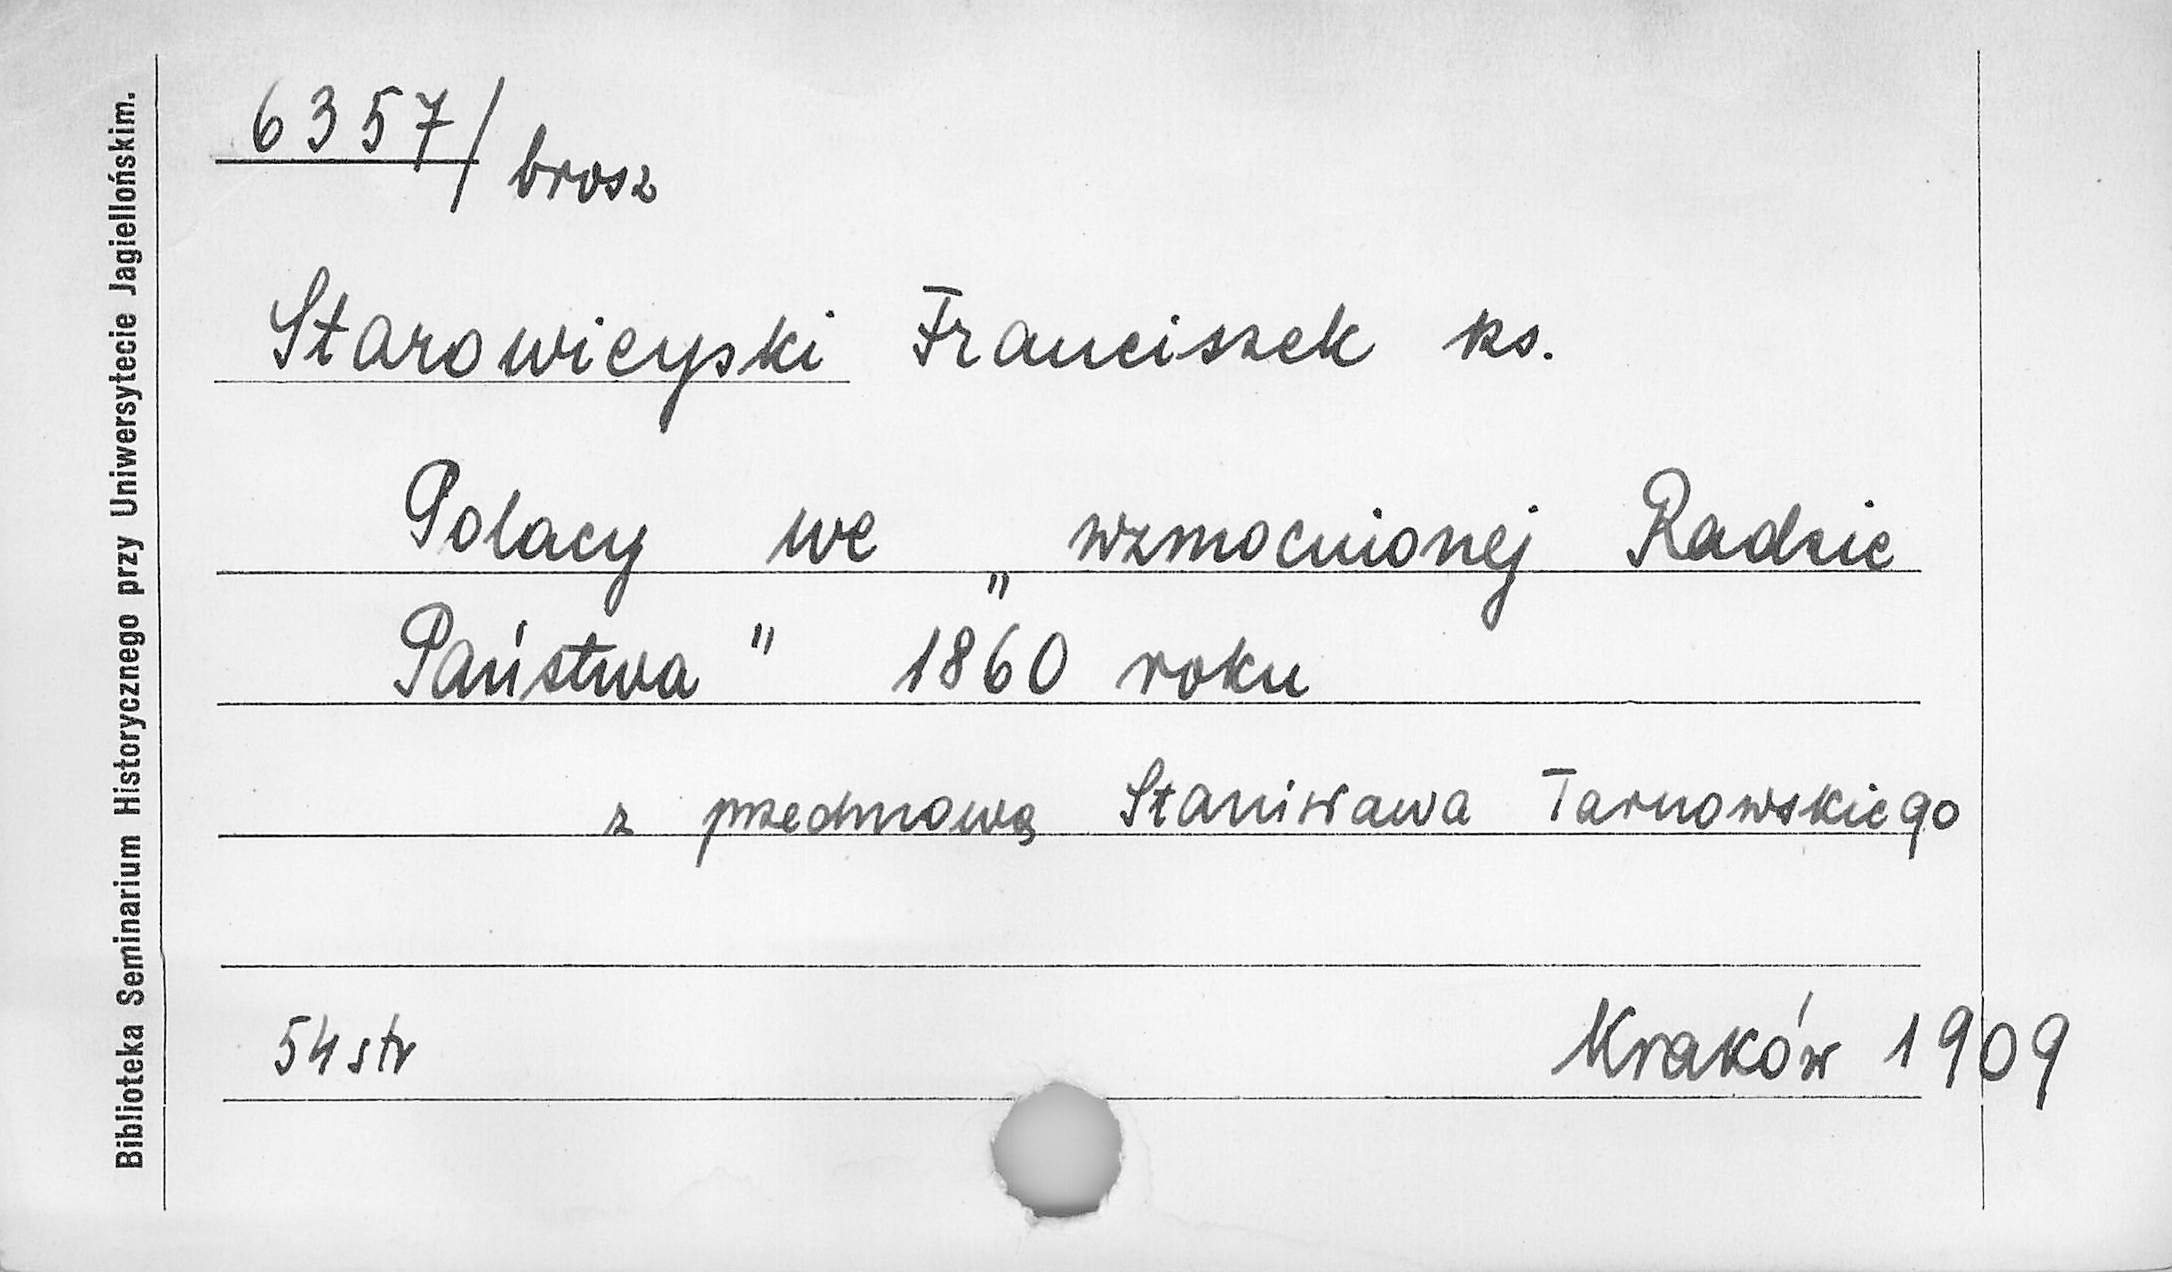 6357/brosz
Starowieyski Franciszek ks.
Polacy we „wzmocnionej Radzie
Państwa" 1860 roku
z przedmową Stanisława Tarnowskiego
54 str Kraków 1909
Biblioteka Seminarium Historycznego przy Uniwersytecie Jagiellońskim.